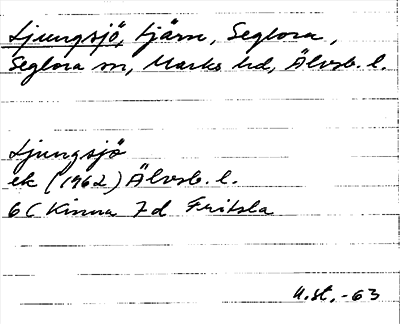 Ljungsjö, tjärn, Seglora,
Seglora sn, Marks hd, Älvsb. l.
Ljungsjö
ek (1962) Älvsb. l.
6C Kinna 7d Fritsla
U.st. -63